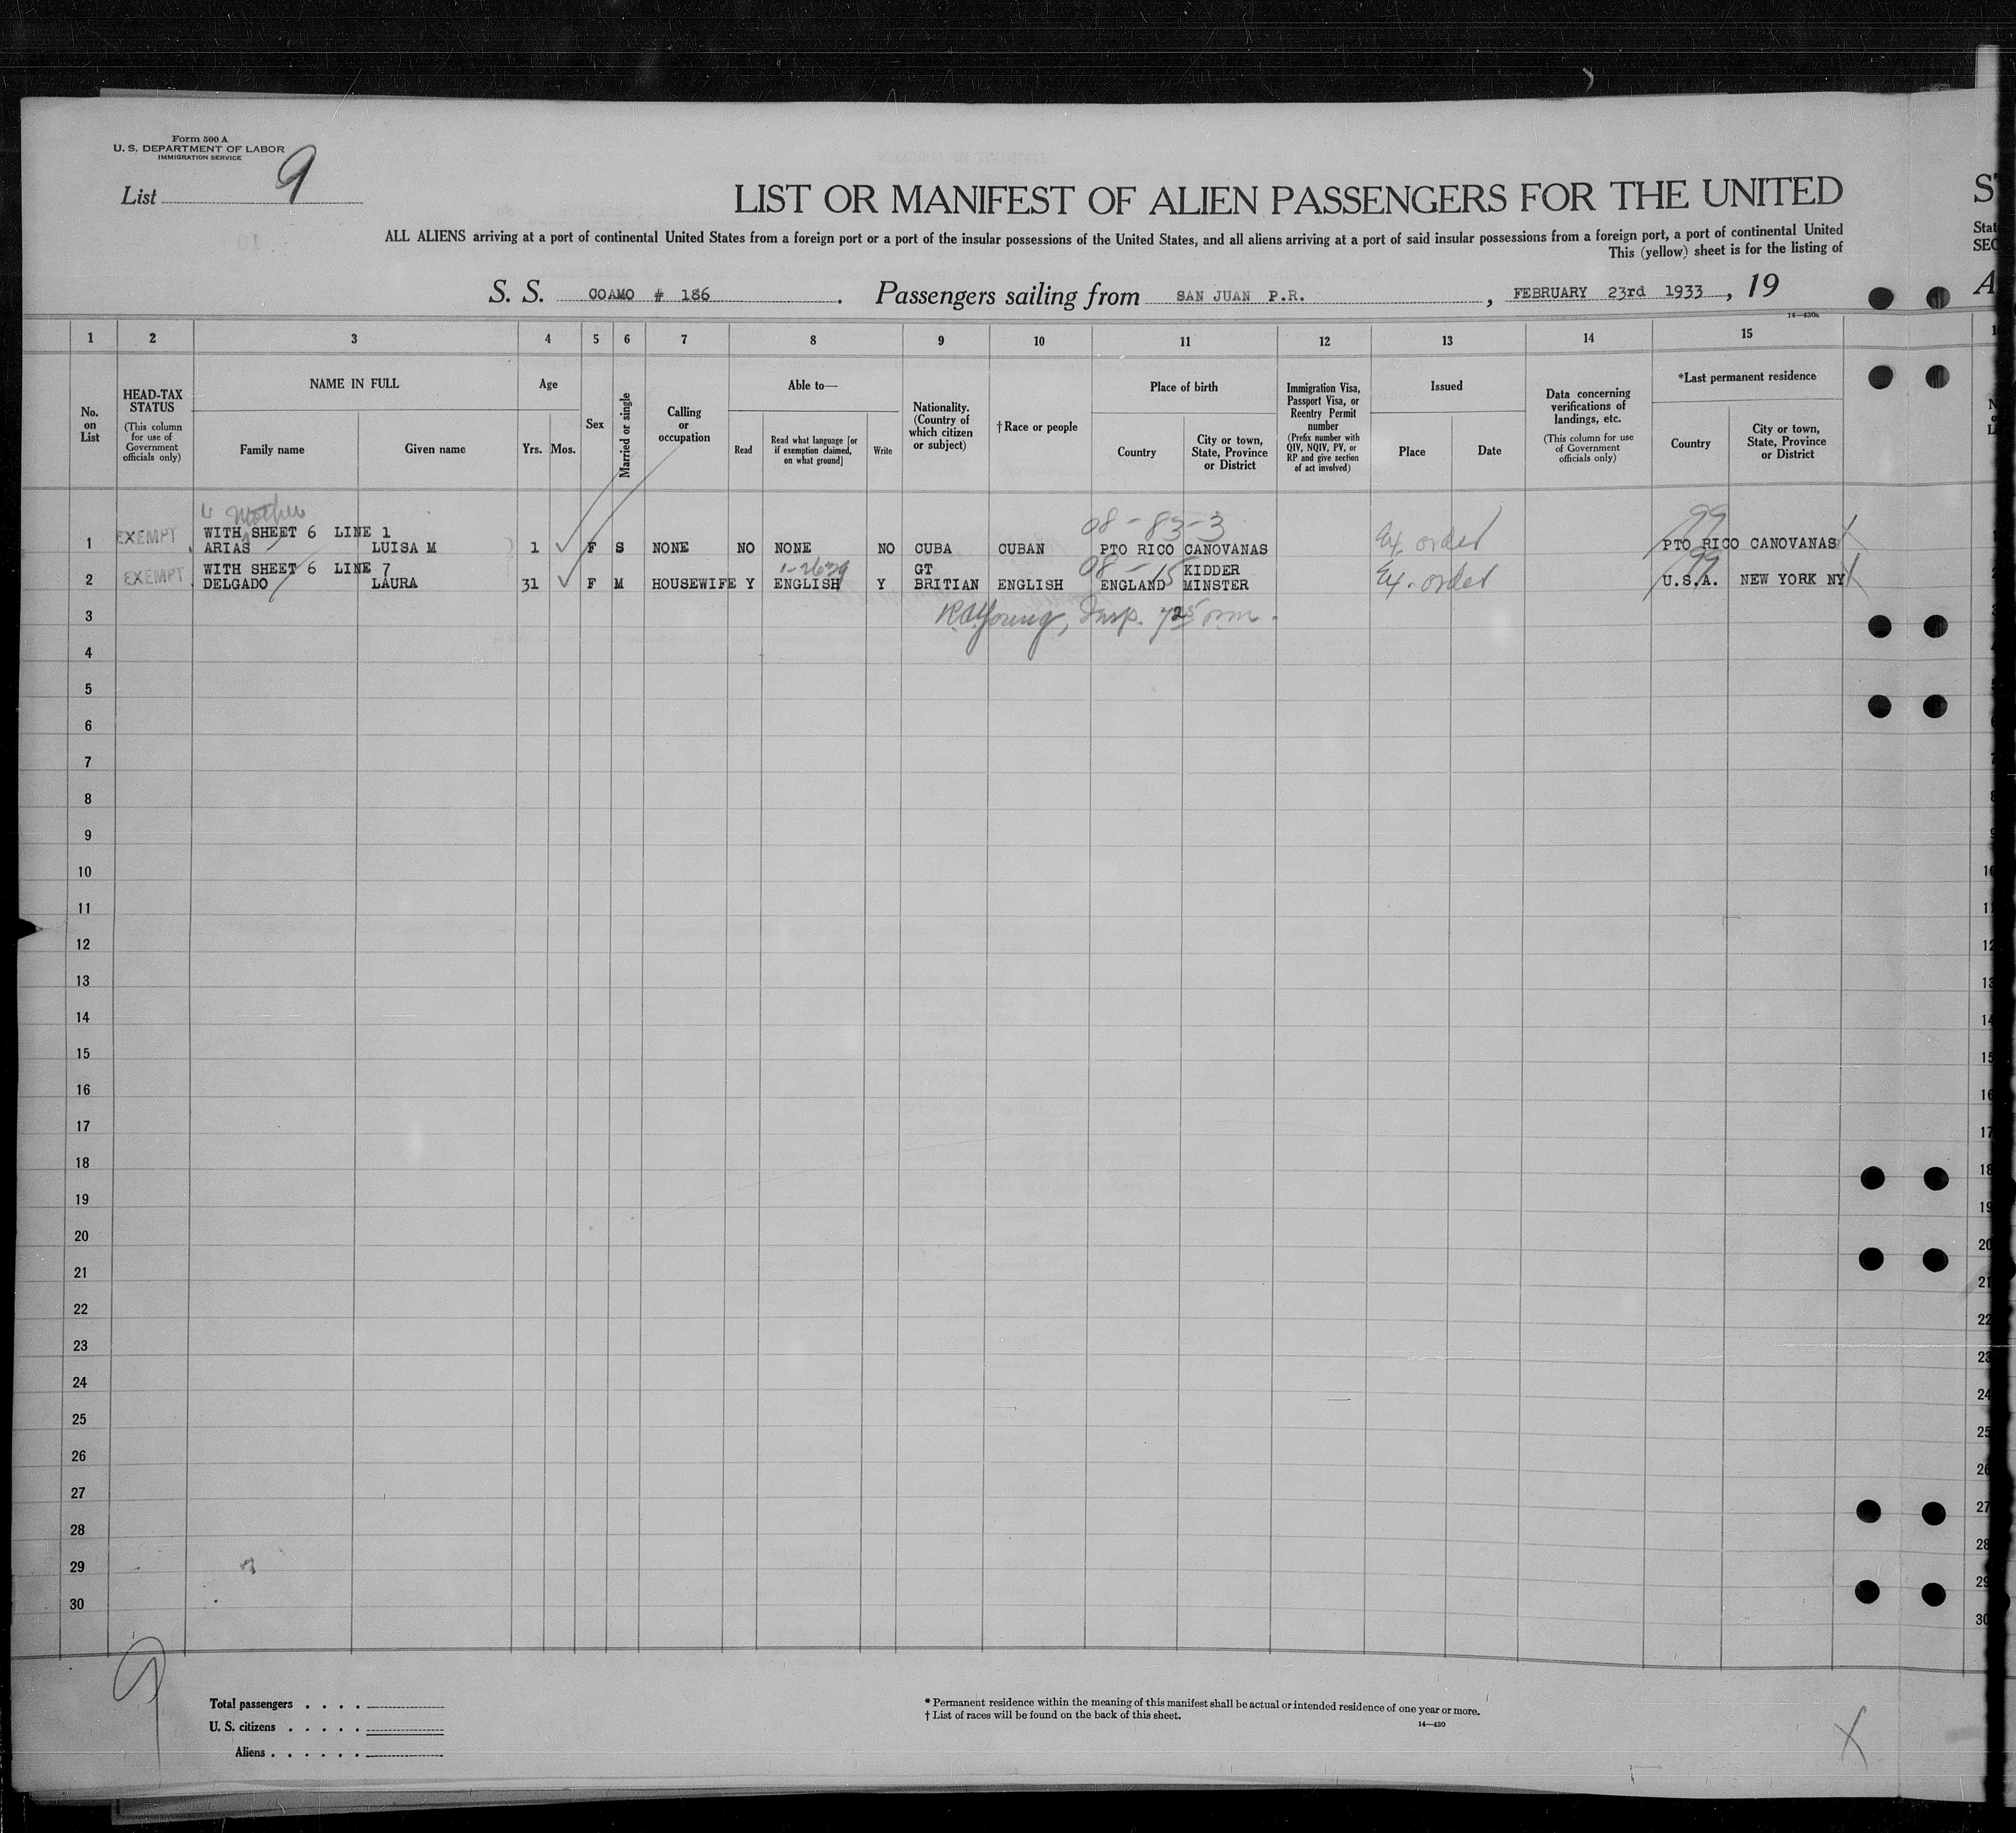 Form 500 A
U. S. DEPARTMENT OF LABOR
IMMIGRATION SERVICE
List 9
LIST OR MANIFEST OF ALIEN PASSENGERS FOR THE UNITED
ALL ALIENS arriving at a port of continental United States from a foreign port or a port of the insular possessions of the United States, and all aliens arriving at a port of said insular possessions from a foreign port, a port of continental United
This (yellow) sheet is for the listing of
S. S. COAMO # 186 . Passengers sailing from SAN JUAN P.R. , FEBRUARY 23rd 1933 , 19
14—430a
1 2 3 4 5 6 7 8 9 10 11 12 13 14 15
No. on List
HEAD-TAX STATUS
(This column for use of Government officials only)
NAME IN FULL
Family name
Given name
Age
Yrs. Mos.
Sex
Married or single
Calling or occupation
Able to—
Read
Read what language [or if exemption claimed, on what ground]
Write
Nationality. (Country of which citizen or subject)
†Race or people
Place of birth
Country
City or town, State, Province or District
Immigration Visa, Passport Visa, or Reentry Permit number
(Prefix number with QIV, NQIV, PV, or RP and give section of act involved)
Issued
Place
Date
Data concerning verifications of landings, etc.
(This column for use of Government officials only)
*Last permanent residence
Country
City or town, State, Province or District
Mother
WITH SHEET 6 LINE 1 08-83-3 99
1 EXEMPT ARIAS LUISA M 1 F S NONE NO NONE NO CUBA CUBAN PTO RICO CANOVANAS Ex. order PTO RICO CANOVANAS
WITH SHEET 6 LINE 7 GT 08-15 KIDDER 99
2 EXEMPT DELGADO LAURA 31 F M HOUSEWIFE Y ENGLISH Y BRITIAN ENGLISH ENGLAND MINSTER Ex. order U.S.A. NEW YORK NY
3 Young, Insp. 725
4
5
6
7
8
9
10
11
12
13
14
15
16
17
18
19
20
21
22
23
24
25
26
27
28
29
30
9
Total passengers . . . .
U. S. citizens . . . . .
Aliens . . . . . .
* Permanent residence within the meaning of this manifest shall be actual or intended residence of one year or more.
† List of races will be found on the back of this sheet.
14—430
X